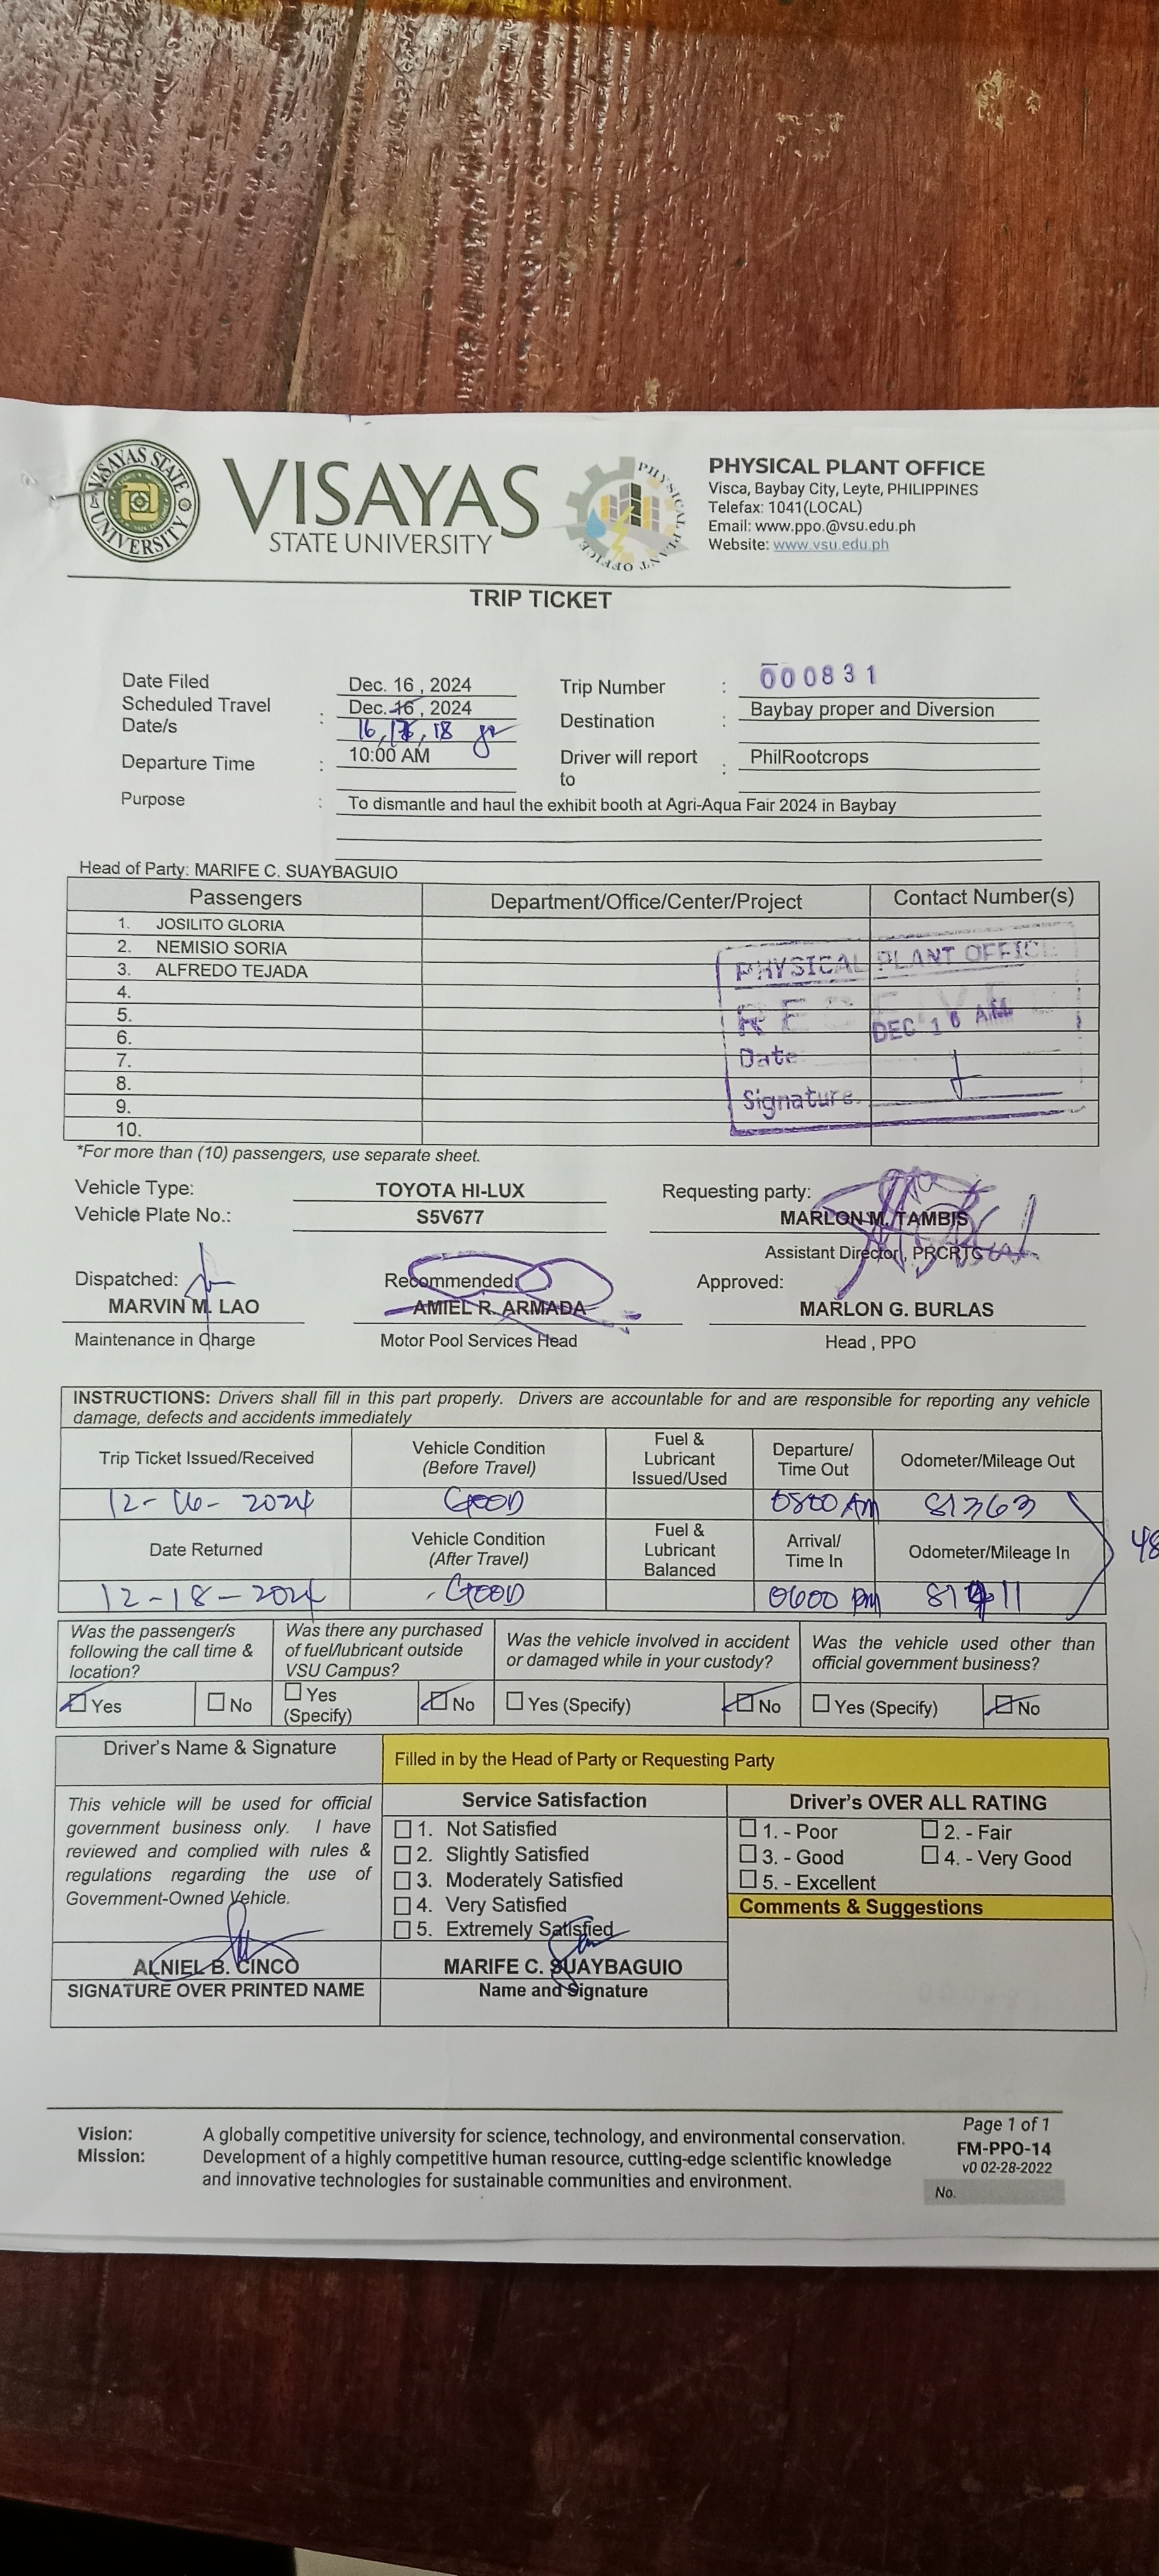 VISAYAS STATE UNIVERSITY
VISAYAS
STATE UNIVERSITY
PHYSICAL PLANT OFFICE
PHYSICAL PLANT OFFICE
Visca, Baybay City, Leyte, PHILIPPINES
Telefax: 1041(LOCAL)
Email: www.ppo.@vsu.edu.ph
Website: www.vsu.edu.ph
TRIP TICKET
Date Filed Dec. 16 , 2024 Trip Number : 000831
Scheduled Travel Date/s : Dec. 16 , 2024 Destination : Baybay proper and Diversion
16, 17, 18
Departure Time : 10:00 AM Driver will report to : PhilRootcrops
Purpose : To dismantle and haul the exhibit booth at Agri-Aqua Fair 2024 in Baybay
Head of Party: MARIFE C. SUAYBAGUIO
Passengers Department/Office/Center/Project Contact Number(s)
1. JOSILITO GLORIA
2. NEMISIO SORIA
3. ALFREDO TEJADA
4.
5.
6.
7.
8.
9.
10.
PHYSICAL PLANT OFFICE
RECEIVED
DEC 16 AM
Date
Signature
*For more than (10) passengers, use separate sheet.
Vehicle Type: TOYOTA HI-LUX Requesting party:
Vehicle Plate No.: S5V677 MARLON M. TAMBIS
Assistant Director , PRCRTC
Dispatched: Recommended: Approved:
MARVIN M. LAO AMIEL R. ARMADA MARLON G. BURLAS
Maintenance in Charge Motor Pool Services Head Head , PPO
INSTRUCTIONS: Drivers shall fill in this part properly. Drivers are accountable for and are responsible for reporting any vehicle
damage, defects and accidents immediately
Trip Ticket Issued/Received Vehicle Condition (Before Travel) Fuel & Lubricant Issued/Used Departure/ Time Out Odometer/Mileage Out
12-16-2024 GOOD 0800 AM 81363
48
Date Returned Vehicle Condition (After Travel) Fuel & Lubricant Balanced Arrival/ Time In Odometer/Mileage In
12-18-2024 GOOD 0600 PM 81411
Was the passenger/s following the call time & location? Was there any purchased of fuel/lubricant outside VSU Campus? Was the vehicle involved in accident or damaged while in your custody? Was the vehicle used other than official government business?
Yes No Yes (Specify) No Yes (Specify) No Yes (Specify) No
Driver's Name & Signature Filled in by the Head of Party or Requesting Party
This vehicle will be used for official
government business only. I have
reviewed and complied with rules &
regulations regarding the use of
Government-Owned Vehicle.
Service Satisfaction
1. Not Satisfied
2. Slightly Satisfied
3. Moderately Satisfied
4. Very Satisfied
5. Extremely Satisfied
Driver's OVER ALL RATING
1. - Poor 2. - Fair
3. - Good 4. - Very Good
5. - Excellent
Comments & Suggestions
ALNIEL B. CINCO MARIFE C. SUAYBAGUIO
SIGNATURE OVER PRINTED NAME Name and Signature
Vision: A globally competitive university for science, technology, and environmental conservation.
Mission: Development of a highly competitive human resource, cutting-edge scientific knowledge
and innovative technologies for sustainable communities and environment.
Page 1 of 1
FM-PPO-14
v0 02-28-2022
No.